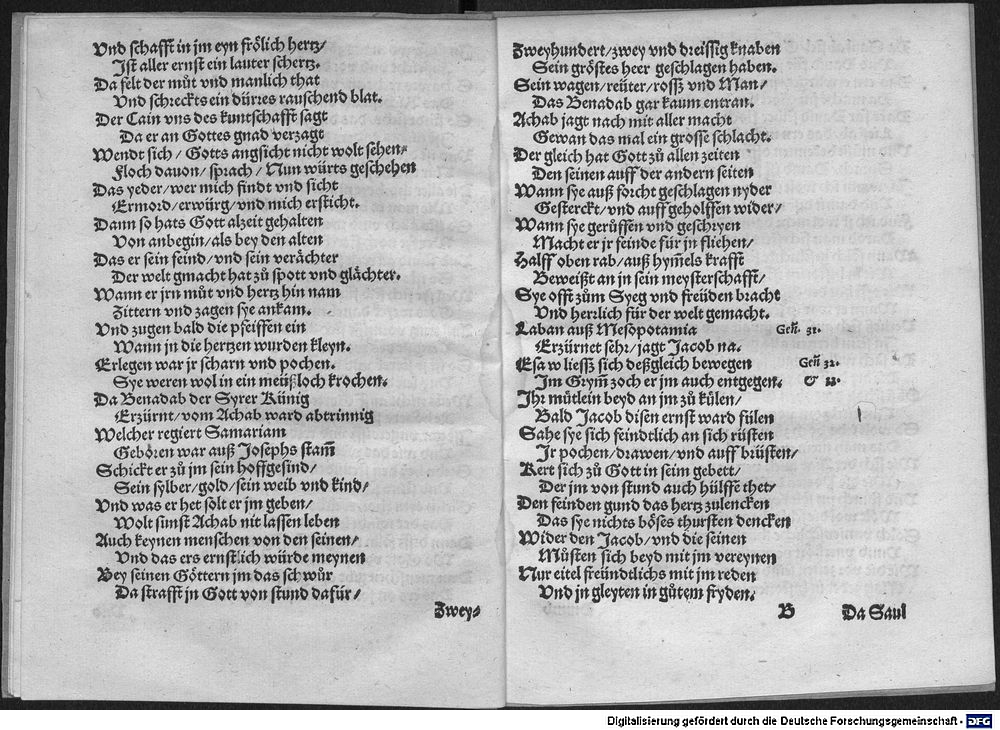 Vnd schafft in jm eyn frölich hertz/
Ist aller ernst ein lauter schertz.
Da felt der můt vnd manlich that
Vnd schreckts ein dürres rauschend blat.
Der Cain vns des kuntschafft sagt
Da er an Gottes gnad verzagt
Wendt sich/ Gotts angsicht nicht wolt sehen/
Floch dauon/ sprach/ Nun würts geschehen
Das yeder/ wer mich findt vnd sicht
Ermord/ erwürg/ vnd mich ersticht.
Dann so hats Gott alzeit gehalten
Von anbegin/ als bey den alten
Das er sein feind/ vnd sein verächter
Der welt gmacht hat zů spott vnd glächter.
Wann er jrn můt vnd hertz hin nam
Zittern vnd zagen sye ankam.
Vnd zugen bald die pfeiffen ein
Wann in die hertzen wurden kleyn.
Erlegen war jr scharn vnd pochen.
Sye weren wol in ein meüßloch krochen.
Da Benadab der Syrer Künig
Erzürnt/ vom Achab ward abtrinnig
Welcher regiert Samariam
Geboren war auß Josephs stam̃
Schickt er zů jm sein hoffgesind/
Sein sylber/ gold/ sein weib vnd kind/
Vnd was er het solt er jm geben/
Wolt sunst Achab nit lassen leben
Auch keynen menschen von den seinen/
Vnd das ers ernstlich würde meynen
Bey seinen Göttern jm das schwůr
Da strafft jn Gott von stund dafür/
Zwey-
Zweyhundert/ zwey vnd dreissig knaben
Sein gröstes heer geschlagen haben.
Sein wagen/ reüter/ rossz vnd Man/
Das Benadab gar kaum entran.
Achab jagt nach mit aller macht
Gewan das mal ein grosse schlacht.
Der gleich hat Gott zů allen zeiten
Den seinen auff der andern seiten
Wann sye auß forcht geschlagen nyder
Gesterckt/ vnd auff geholffen wider/
Wann sye gerůffen vnd geschryen
Macht er jr feinde für jn fliehen/
Halff oben rab/ auß hym̃els krafft
Beweißt an jn sein meysterschafft/
Sye offt zům Syeg vnd freüden bracht
Vnd herrlich für der welt gemacht.
Laban auß Mesopotamia Geñ. 31.
Erzürnet sehr/ jagt Jacob na.
Esaw liessz sich deßgleich bewegen Geñ 32.
Im Grym̃ zoch er jm auch entgegen. & 33.
Ihr mütlein beyd an jm zů külen/
Bald Jacob disen ernst ward fülen
Sahe sye sich feindtlich an sich rüsten
Ir pochen/ drawen/ vnd auff brüsten/
Kert sich zů Gott in seim gebett/
Der jm von stund auch hülffe thet/
Den feinden gund das hertz zulencken
Das sye nichts böses thursten dencken
Wider den Jacob/ vnd die seinen
Můsten sich beyd mit jm vereynen
Nur eitel freündtlichs mit jm reden
Vnd jn gleyten in gůtem fryden.
B Da Saul
Digitalisierung gefördert durch die Deutsche Forschungsgemeinschaft - DFG